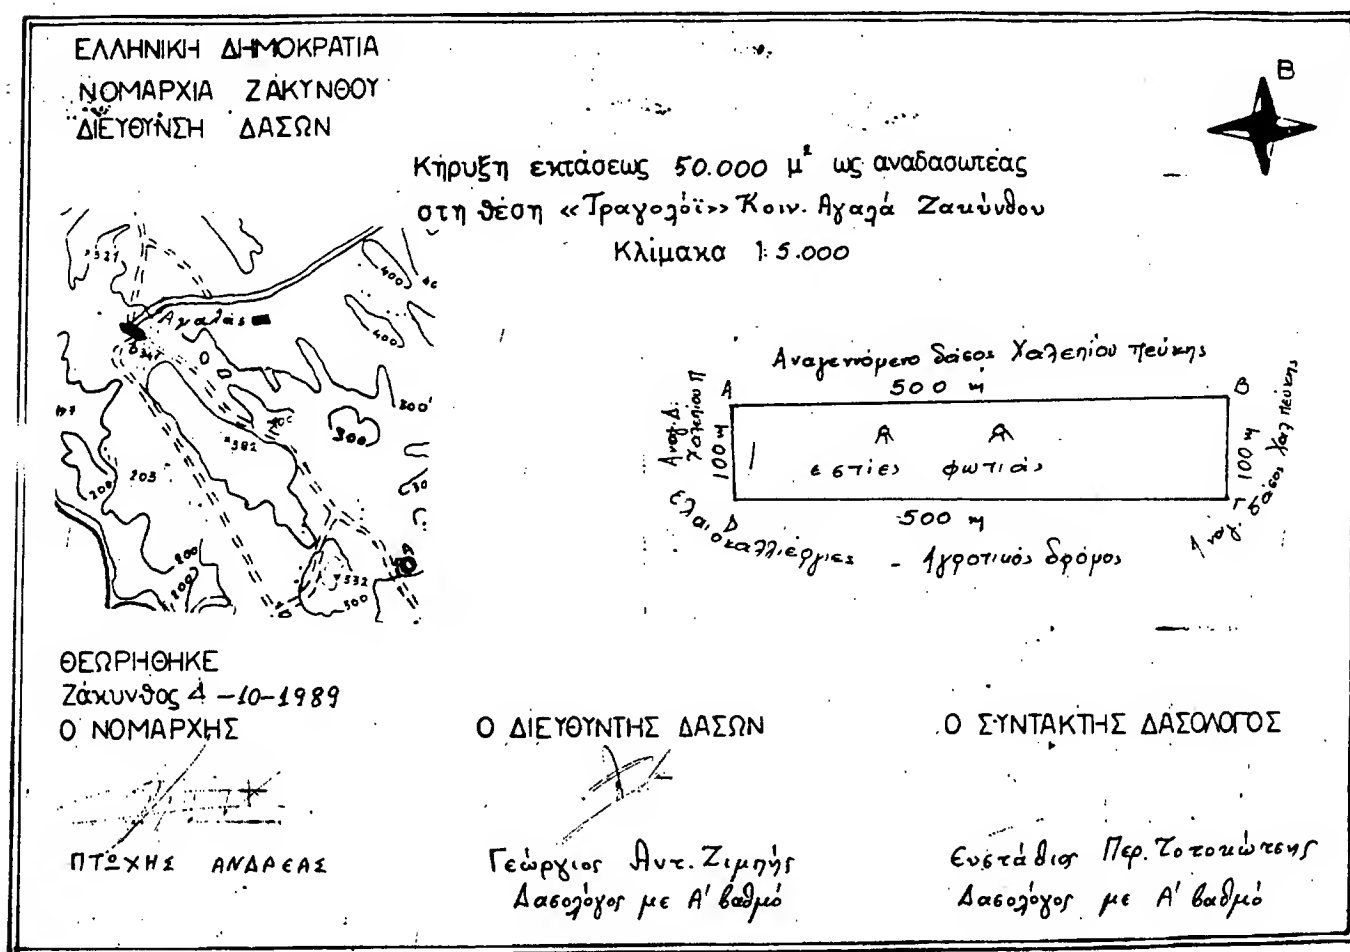 ΕΛΛΗΝΙΚΗ ΔΗΜΟΚΡΑΤΙΑ
ΝΟΜΑΡΧΙΑ ΖΑΚΥΝΘΟΥ
ΔΙΕΥΘΥΝΣΗ ΔΑΣΩΝ
Β
Κήρυξη εκτάσεως 50.000 μ² ως αναδασωτέας
στη θέση «Τραγολόϊ» Κοιν. Αγαλά Ζακύνθου
Κλίμακα 1:5.000
327
400
400
Αγαλάς
347
300
300
382
203
200
200
200
332
300
Αναγεννόμενο δάσος Χαλεπίου πεύκης
Α 500 m Β
Αναγ. Δ.
Χαλεπίου Π
100 m
εστίες φωτιάς
100 m
Αναγ. δάσος Χαλ πεύκης
Δ 500 m Γ
Ελαιοκαλλιέργιες - Αγροτικός δρόμος
ΘΕΩΡΗΘΗΚΕ
Ζάκυνθος 4-10-1989
Ο ΝΟΜΑΡΧΗΣ
ΠΤΩΧΗΣ ΑΝΔΡΕΑΣ
Ο ΔΙΕΥΘΥΝΤΗΣ ΔΑΣΩΝ
Γεώργιος Αντ. Ζιμπής
Δασολόγος με Α' βαθμό
Ο ΣΥΝΤΑΚΤΗΣ ΔΑΣΟΛΟΓΟΣ
Ευστάθιος Περ.
Δασολόγος με Α' βαθμό